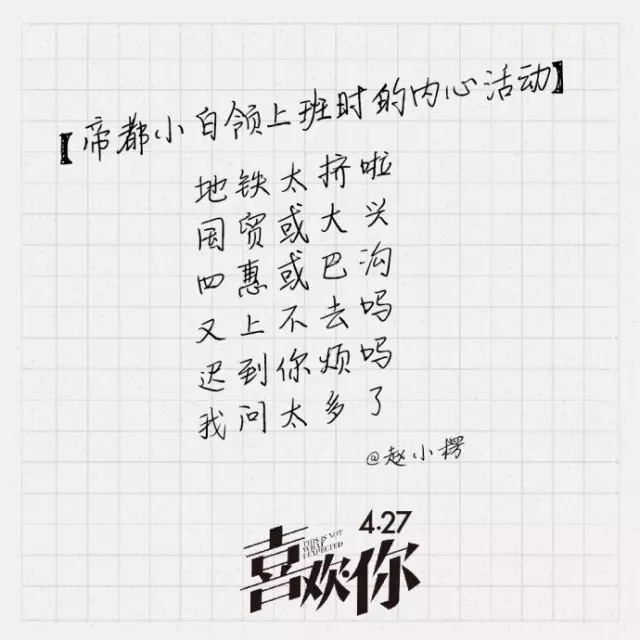 【帝都小白领上班时的内心活动】
地铁太挤啦
国贸或大兴
四惠或巴沟
又上不去吗
迟到你烦吗
我问太多了
@赵小楞
4.27
喜欢·你
THIS IS NOT
WHAT
I EXPECTED